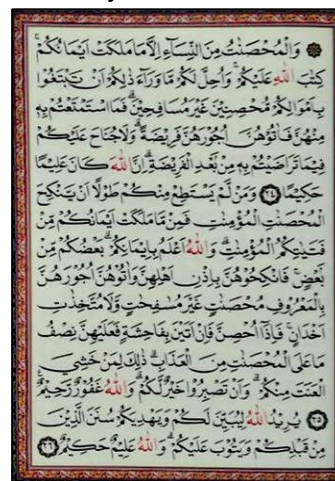 وَالْمُحْصَنٰتُ مِنَ النِّسَٓاءِ اِلَّا مَا مَلَكَتْ اَيْمَانُكُمْۚ
كِتَابَ اللّٰهِ عَلَيْكُمْۚ وَاُحِلَّ لَكُمْ مَا وَرَٓاءَ ذٰلِكُمْ اَنْ تَبْتَغُوا
بِاَمْوَالِكُمْ مُحْصِنٖينَ غَيْرَ مُسَافِحٖينَۜ فَمَا اسْتَمْتَعْتُمْ بِهٖ
مِنْهُنَّ فَاٰتُوهُنَّ اُجُورَهُنَّ فَرٖيضَةًۜ وَلَا جُنَاحَ عَلَيْكُمْ
فٖيمَا تَرَاضَيْتُمْ بِهٖ مِنْ بَعْدِ الْفَرٖيضَةِۜ اِنَّ اللّٰهَ كَانَ عَلٖيمًا
حَكٖيمًا ﴿٢٤﴾ وَمَنْ لَمْ يَسْتَطِعْ مِنْكُمْ طَوْلًا اَنْ يَنْكِحَ
الْمُحْصَنٰتِ الْمُؤْمِنٰتِ فَمِنْ مَا مَلَكَتْ اَيْمَانُكُمْ مِنْ
فَتَيَاتِكُمُ الْمُؤْمِنٰتِۜ وَاللّٰهُ اَعْلَمُ بِاٖيمَانِكُمْۜ بَعْضُكُمْ مِنْ
بَعْضٍۚ فَانْكِحُوهُنَّ بِاِذْنِ اَهْلِهِنَّ وَاٰتُوهُنَّ اُجُورَهُنَّ
بِالْمَعْرُوفِ مُحْصَنٰتٍ غَيْرَ مُسٰفِحٰتٍ وَلَا مُتَّخِذَاتِ
اَخْدَانٍۚ فَاِذَٓا اُحْصِنَّ فَاِنْ اَتَيْنَ بِفَاحِشَةٍ فَعَلَيْهِنَّ نِصْفُ
مَا عَلَى الْمُحْصَنٰتِ مِنَ الْعَذَابِۜ ذٰلِكَ لِمَنْ خَشِيَ
الْعَنَتَ مِنْكُمْۜ وَاَنْ تَصْبِرُوا خَيْرٌ لَكُمْۜ وَاللّٰهُ غَفُورٌ رَحٖيمٌ
﴿٢٥﴾ يُرٖيدُ اللّٰهُ لِيُبَيِّنَ لَكُمْ وَيَهْدِيَكُمْ سُنَنَ الَّذٖينَ
مِنْ قَبْلِكُمْ وَيَتُوبَ عَلَيْكُمْۜ وَاللّٰهُ عَلٖيمٌ حَكٖيمٌ ﴿٢٦﴾